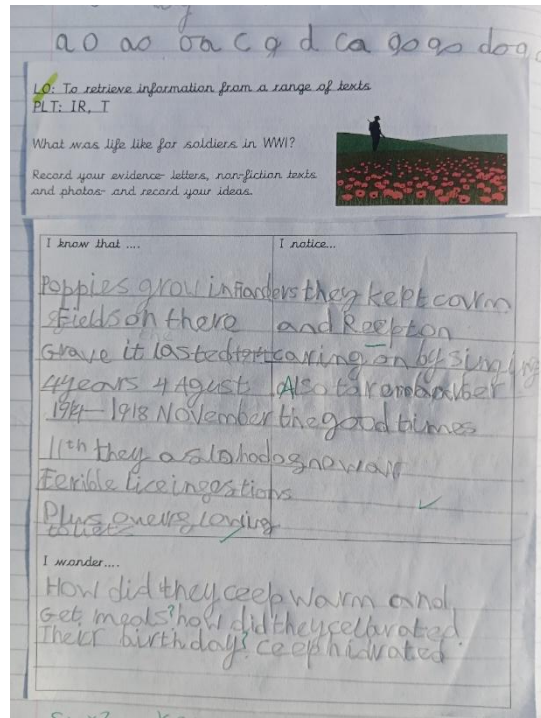 ao ao oa c g d ca go go dog
LO: To retrieve information from a range of texts
PLT: IR, T
What was life like for soldiers in WWI?
Record your evidence- letters, non-fiction texts
and photos- and record your ideas.
I know that ....
Poppies grow in flanders
fields on there
Grave it lasted
4 years 4 Agust
1914-1918 November
11th they
Terible lice
Plus
I notice...
they kept carm
and Reept on
caring on by singing
Also to remember
the good times
I wonder....
How did they ceep warm and
Get meals? how did they celbrated
Their birthday? ceep hidrated